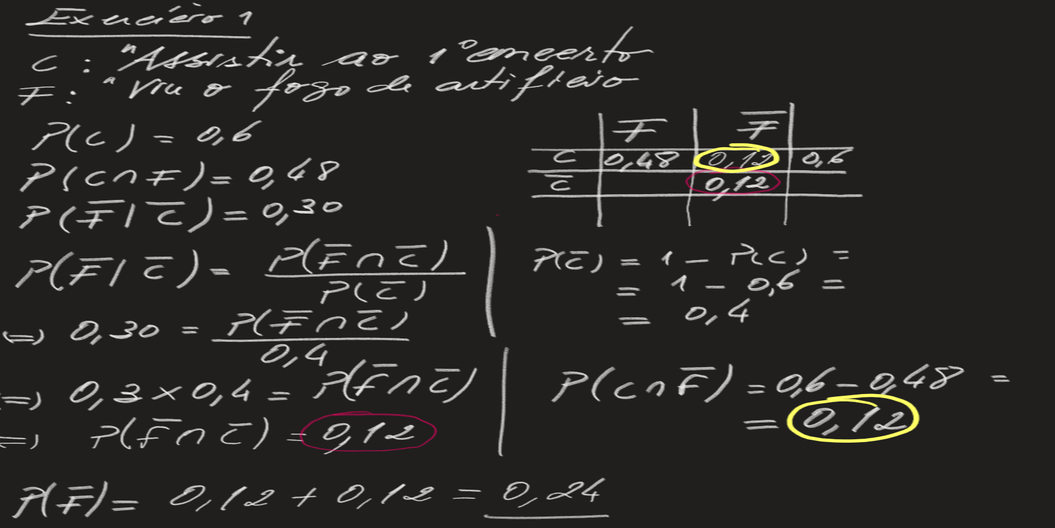 Exercício 1
C : "Assistir ao 1º concerto
F : "Viu o fogo de artifício
P(C) = 0,6
P(C∩F) = 0,48
P(F̅|C̅) = 0,30
P(F̅|C̅) = P(F̅∩C̅) / P(C̅)
⇔ 0,30 = P(F̅∩C̅) / 0,4
⇔ 0,3 × 0,4 = P(F̅∩C̅)
⇔ P(F̅∩C̅) = 0,12
F F̅
C 0,48 0,12 0,6
C̅ 0,12
P(C̅) = 1 – P(C) =
= 1 – 0,6 =
= 0,4
P(C∩F̅) = 0,6 – 0,48 =
= 0,12
P(F̅) = 0,12 + 0,12 = 0,24